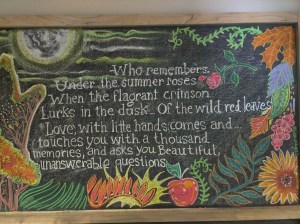 Who remembers.
Under the summer roses
When the flagrant crimson
Lurks in the dusk... Of the wild red leaves
Love, with little hands comes and...
touches you with a thousand
memories, and asks you Beautiful,
unanswerable questions.